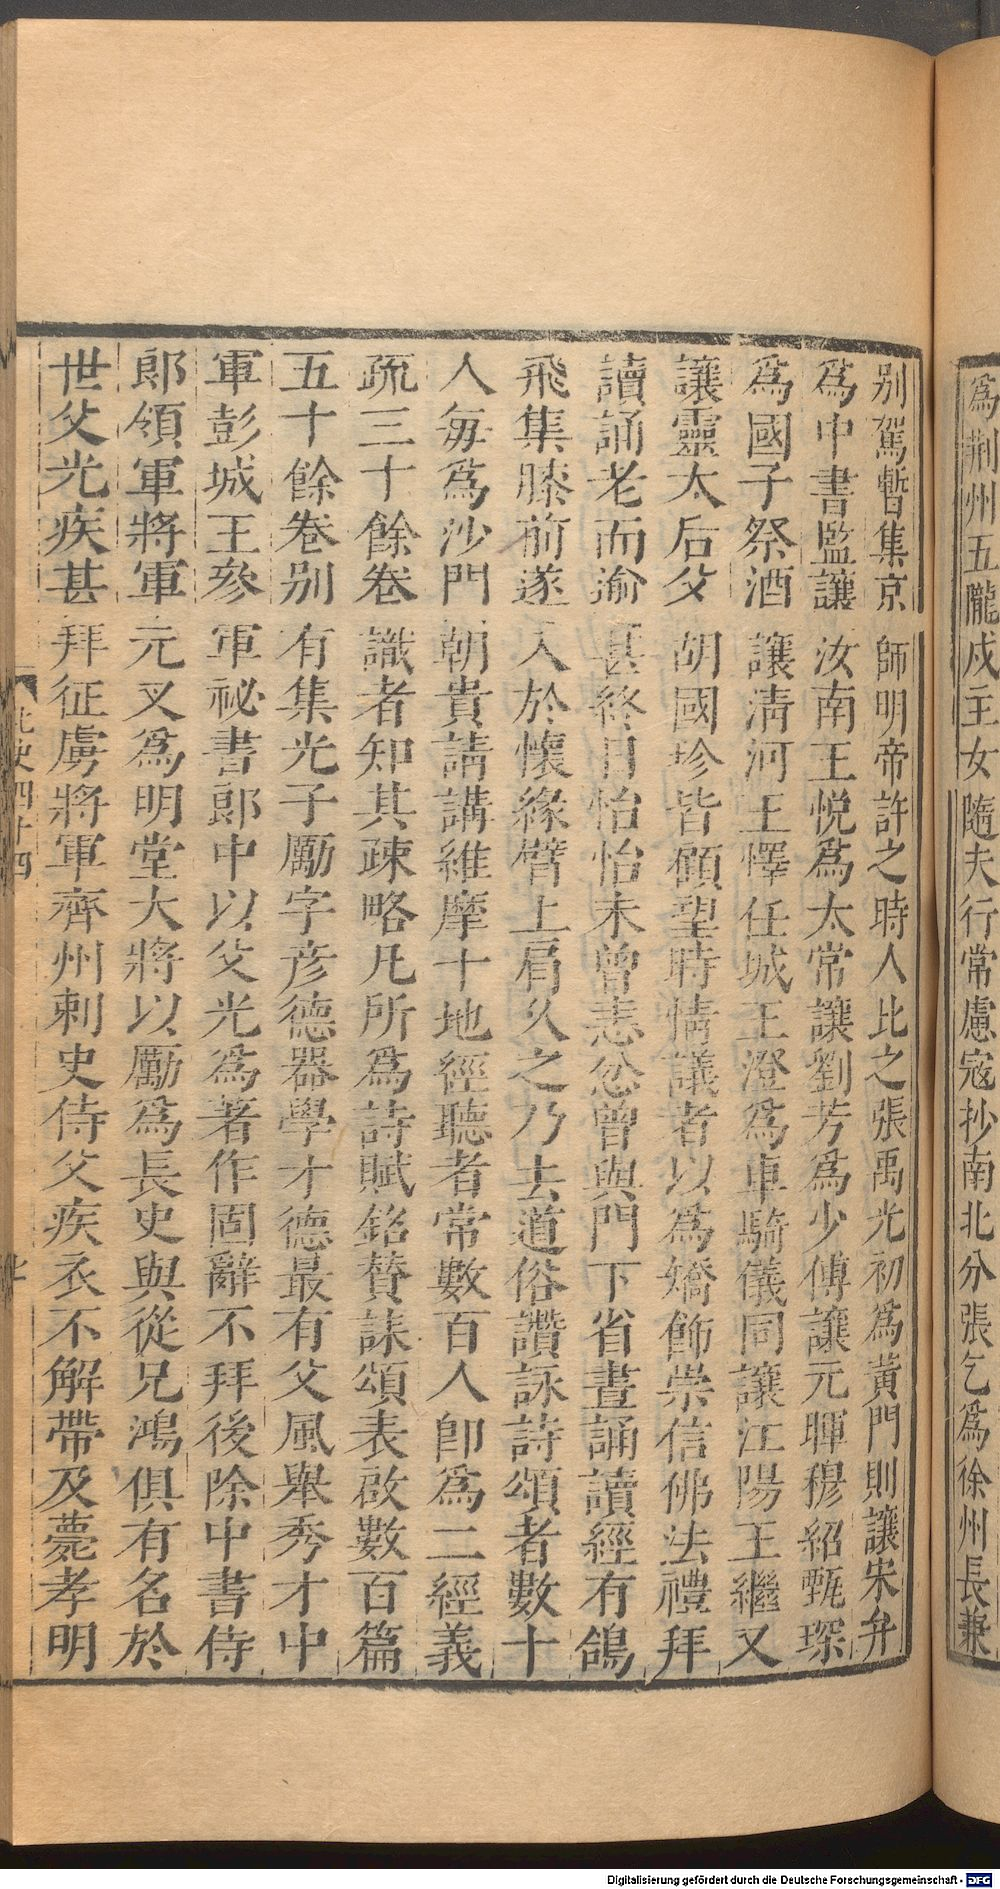 爲荆州五隴戍主女隨夫行常慮寇抄南北分張乞爲徐州長兼
别駕暫集京師明帝許之時人比之張禹光初爲黃門則讓宋弁
爲中書監讓汝南王悅爲太常讓劉芳爲少傅讓元暉穆紹甄琛
爲國子祭酒讓清河王懌任城王澄爲車騎儀同讓江陽王繼又
讓靈太后父胡國珍皆顧望時情議者以爲矯飾崇信佛法禮拜
讀誦老而逾甚終日怡怡未曾恚忿曾與門下省晝誦讀經有鴿
飛集膝前遂入於懷緣臂上肩久之乃去道俗讚詠詩頌者數十
人每爲沙門朝貴請講維摩十地經聽者常數百人卽爲二經義
疏三十餘卷識者知其疎略凡所爲詩賦銘賛誄頌表啟數百篇
五十餘卷别有集光子勵字彦德器學才德最有父風舉秀才中
軍彭城王參軍祕書郞中以父光爲著作固辭不拜後除中書侍
郞領軍將軍元叉爲明堂大將以勵爲長史與從兄鴻俱有名於
世父光疾甚拜征虜將軍齊州刺史侍父疾衣不解帶及薨孝明
北史四十四
Digitalisierung gefördert durch die Deutsche Forschungsgemeinschaft - DFG